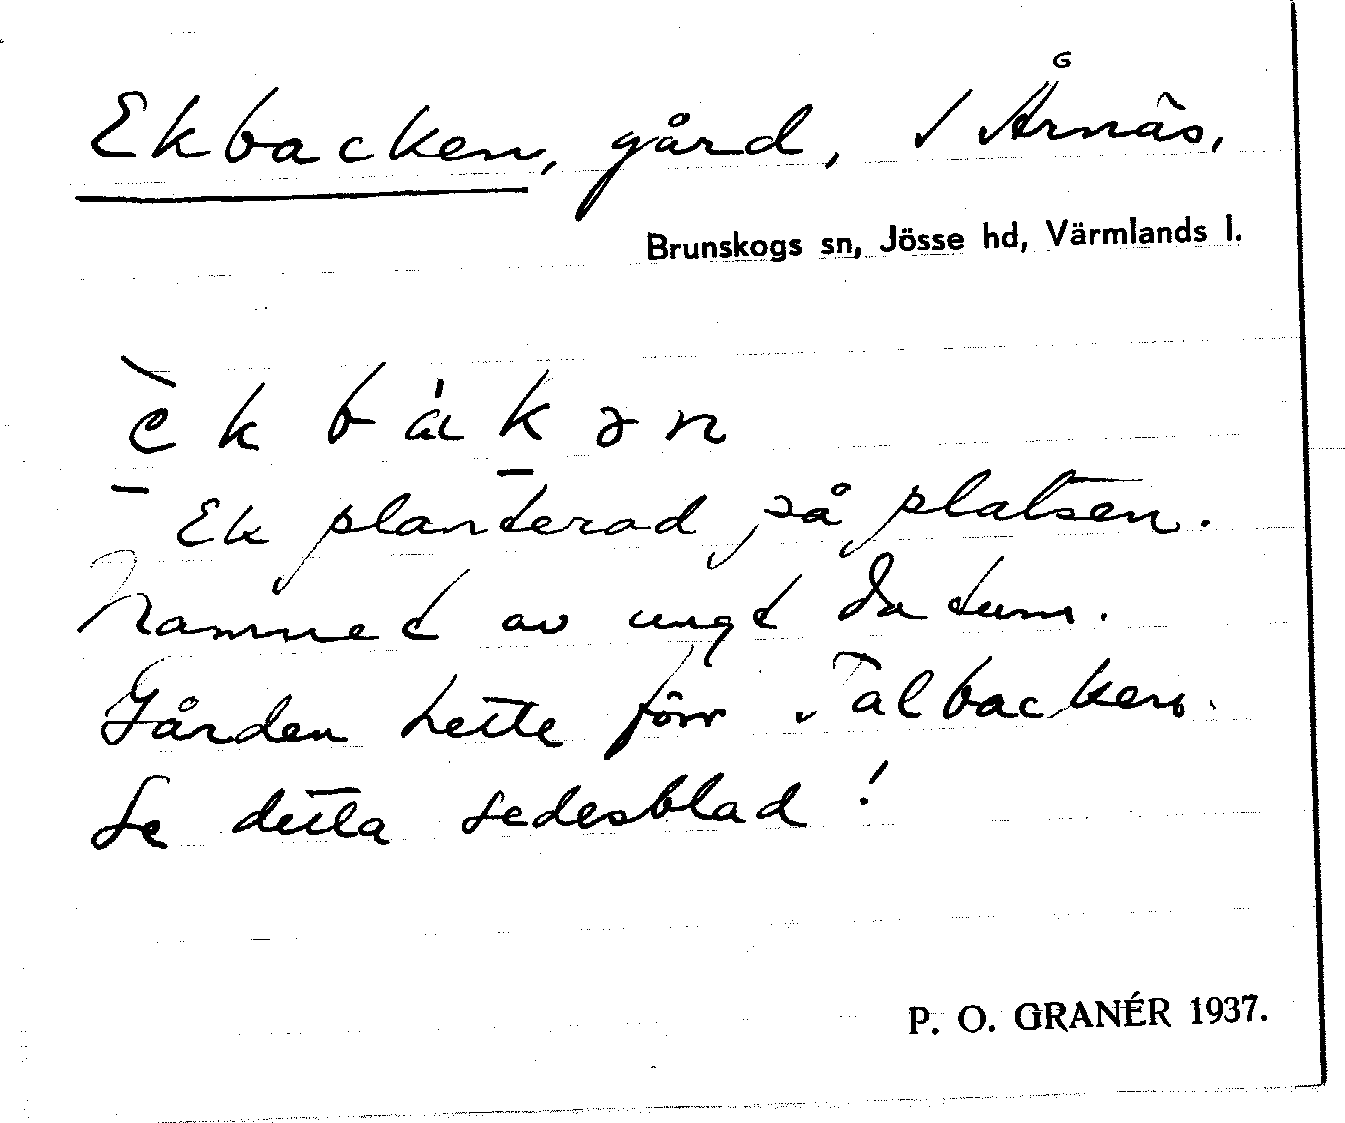 Ekbacken, gård, √ Årnäs,
Brunskogs sn, Jösse hd, Värmlands l.
è k b a̍ k ə n
Ek planterad på platsen.
Namnet av ungt datum.
Gården hette förr √ Talbacken.
Se detta sedesblad!
P. O. GRANÉR 1937.